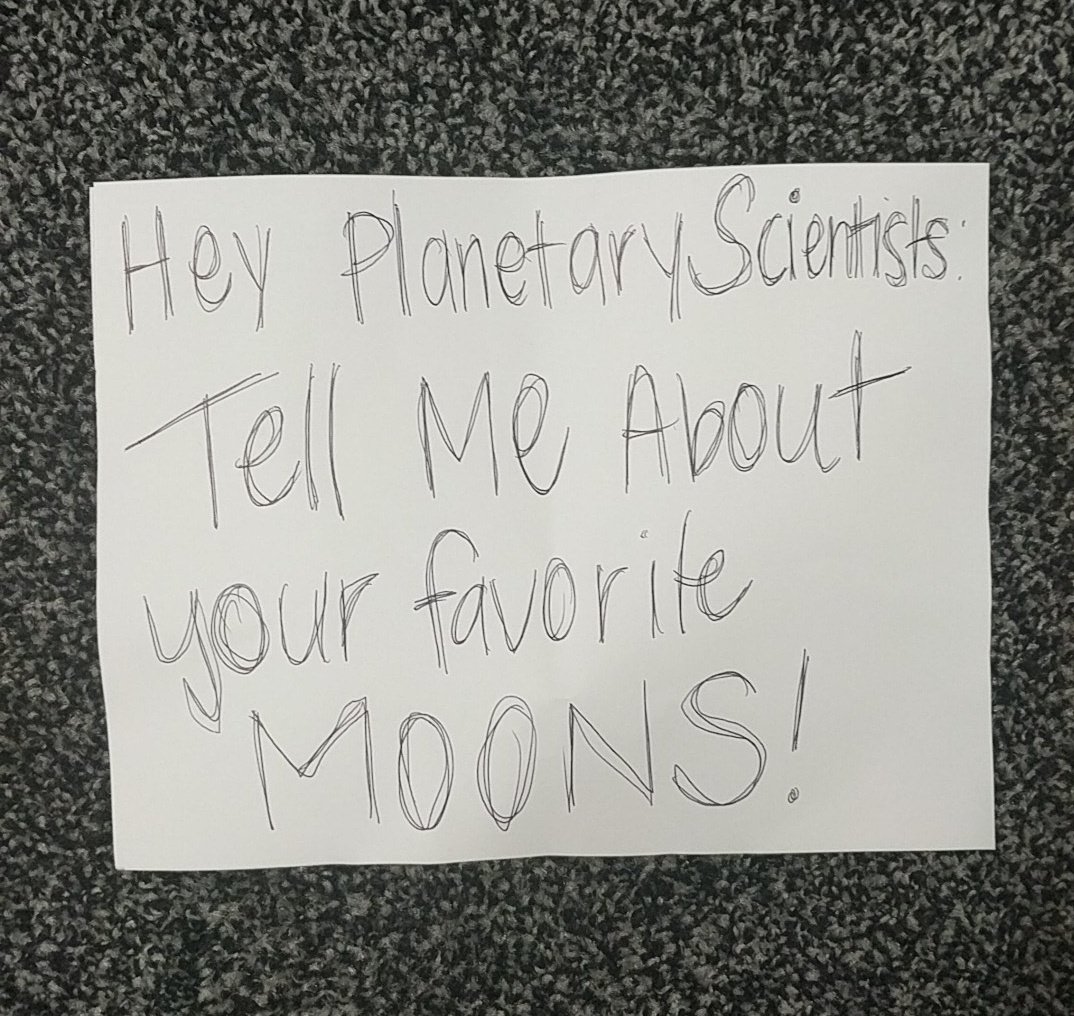 Hey Planetary Scientists:
Tell Me About
your favorite
MOONS!